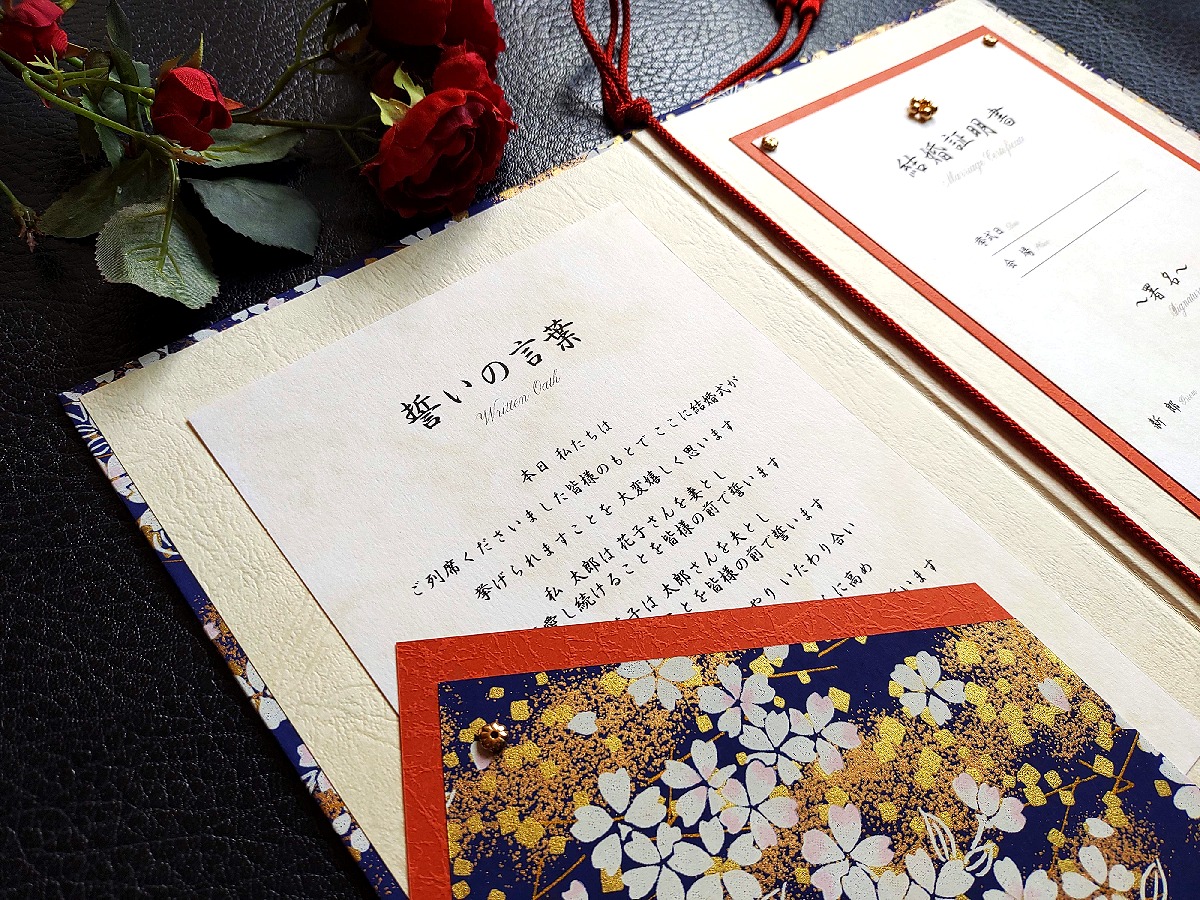 誓いの言葉
Written Oath
本日 私たちは
ご列席くださいました皆様のもとで ここに結婚式が
挙げられますことを 大変嬉しく思います
私 太郎は 花子さんを妻とし
愛し続けることを皆様の前で誓います
子は 太郎さんを夫とし
ことを皆様の前で誓います
やり いたわり合い
に高め
います
結婚証明書
Marriage Certificate
挙式日 Date
会場 Place
~署名~
Signature
新郎 Groom